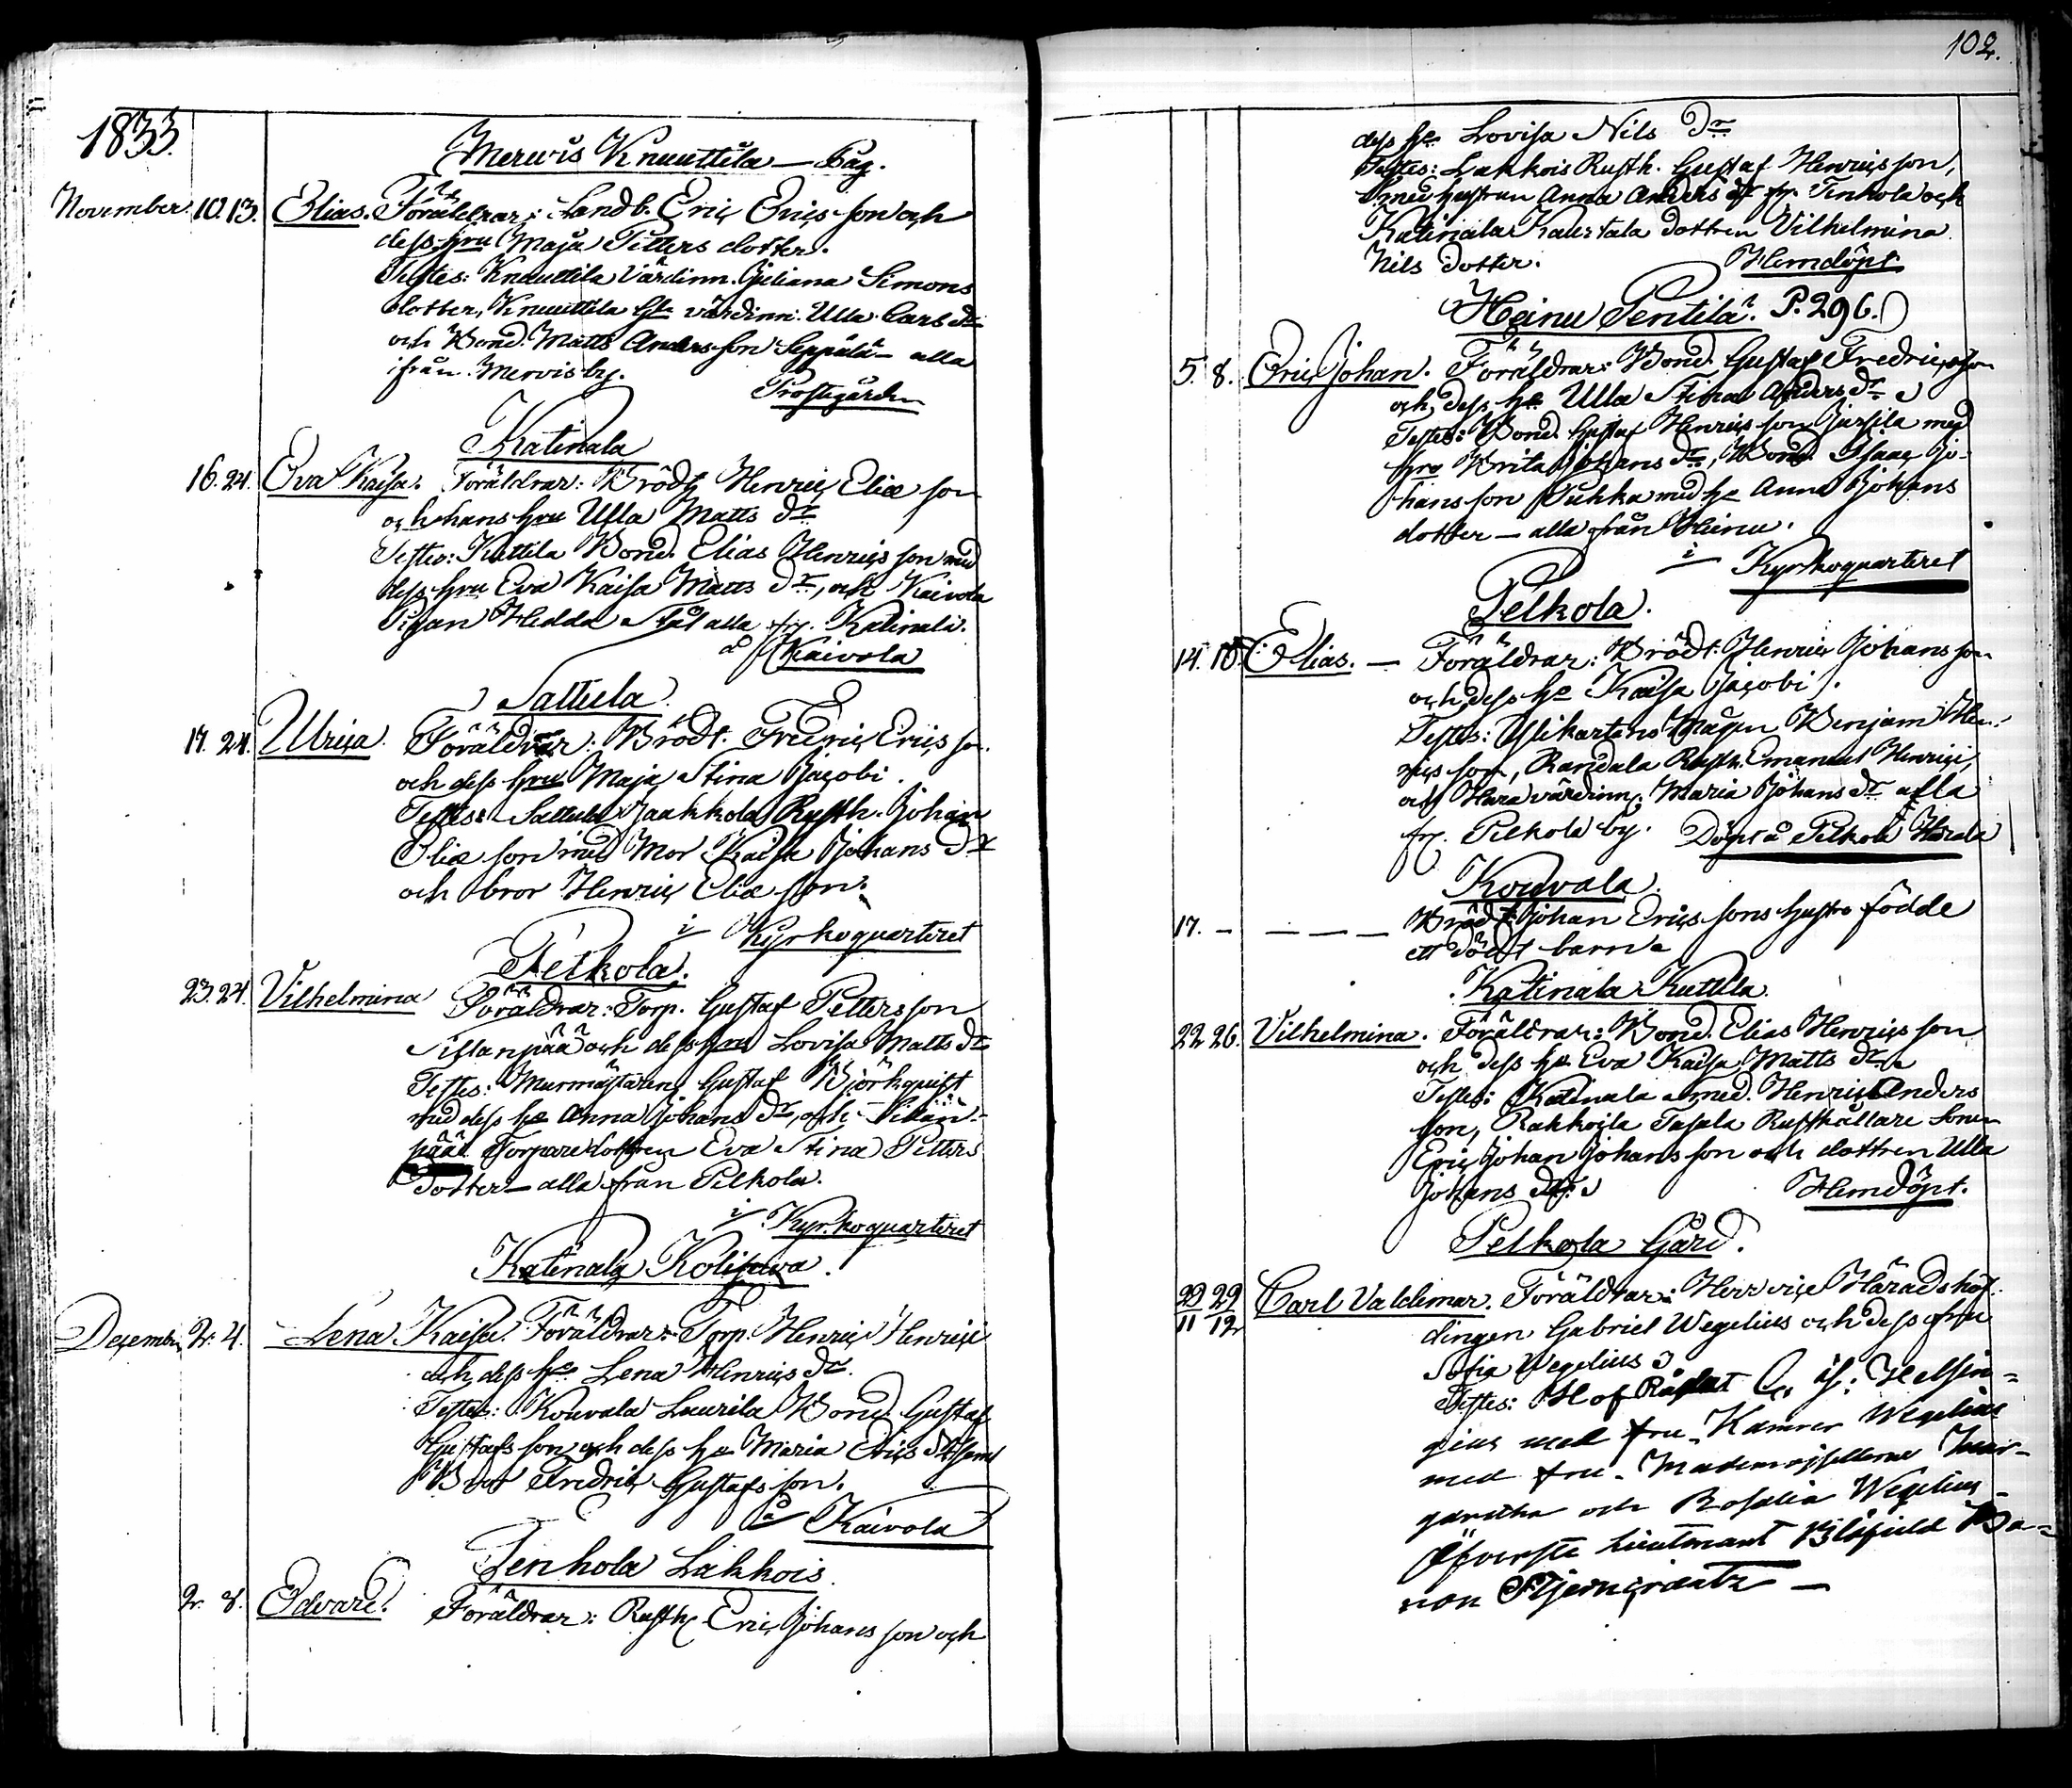 1833.
Merwis Knuuttila — Pag.
November. 10. 13. Elias. Föräldrar: Landb. Eric Erics son och
dess hru Maja Petters dotter.
Testes: Knuuttila Värdinn. Juliana Simons
dotter, Knuuttila Gla värdinn. Ulla Carls dr
och Bond. Matts Andersson Seppälä — alla
ifrån Mervis by.
Prostgården
Katinala
16. 24. Eva Kaisa. Föräldrar: Brödtj Henric Eliæ son
och hans hru Ulla Matts dr
Testes: Kuttila Bond. Elias Henrics son med
dess hru Eva Kaisa Matts dr, och Kaivola
Pigan Hedda Stål alla fr. Katinala.
å Kaivola
Sattula
17. 24. Ulrica. Föräldrar: Brödt. Fredric Erics son
och dess hru Maja Stina Jacobi.
Testes: Sattula Jaakkola Rusth. Johan
Eliæ son med Mor Kaisa Johans dr
och bror Henric Eliæ son.
i Kyrkoquarteret
Pelkola.
23. 24. Vilhelmina Föräldrar: Torp. Gustaf Pettersson
och dess hru Lovisa Matts dr
Testes: Murmästaren Gustaf Björkquist
med dess he Anna Johans dr, och
pää Torparedottren Eva Stina Petters
dotter — alla från Pelkola.
i Kyrkoquarteret
Katinala
December 2. 4. Lena Kaisa. Föräldrar: Torp. Henric Henrici
och dess he Lena Henrics dr.
Testes: Kouvala Laurila Bond. Gustaf
Gustafs son och dess he Maria Erics dr samt
Bror Fredric Gustafs son.
å Kaivola
Tenhola Lakhois.
2. 8. Edvard. Föräldrar: Rusth. Eric Johans son och
102.
dess he Lovisa Nils dr
Testes: Lakhois Rusth. Gustaf Henrics son,
Smedhustrun Anna Anders dr fr. Tenhola och
Katinala dottren Vilhelmina
Nils dotter. Hemdöpt
Heinu Pentilä. P. 296.
5. 8. Eric Johan. Föräldrar: Bond. Gustaf Fredricsson
och dess he Ulla Stina Anders dr
Testes: Bond. Gustaf Henrics son med
hru Brita Johans dr, Bond. Isaac Jo-
hans son Puhka med he Anna Johans
dotter — alla från Heinu.
i Kyrkoquarteret
Pelkola.
14. 15. Elias. — Föräldrar: Brödt. Henric Johans son
och dess he Kaisa Jacobi.
Testes: Benjam. Hen-
rics son, Randala Rusth. Emanuel Henrici,
och Haravärdinn. Maria Johans dr alla
fr. Pelkola by. Döpt å Pelkola Harala
Kouvala.
17. — — — — Brödt. Johan Erics sons hustru födde
ett dödt barn.
Katinala Kuttila.
22 26. Vilhelmina. Föräldrar: Bond. Elias Henrics son
och dess he Eva Kaisa Matts dr.
Testes: Katinala Smed. Henric Anders
son, Rakkoila Tasala Rusthållare Sonen
Eric Johan Johans son och dottren Ulla
Johans dr. Hemdöpt.
Pelkola Gård.
29 29
11 12 Carl Valdemar. Föräldrar: Herr vice Häradshöf
dingen Gabriel Wegelius och dess fru
Sofia Wegelius
Testes: Hof Rådet Helsin-
gius med fru. Kamrer Wegelius
med fru. Mademoisellerne Mar-
garetha och Rosalia Wegelius
Öfverste Lieutnant Blåfield Ba-
ron Stjerncrantz —